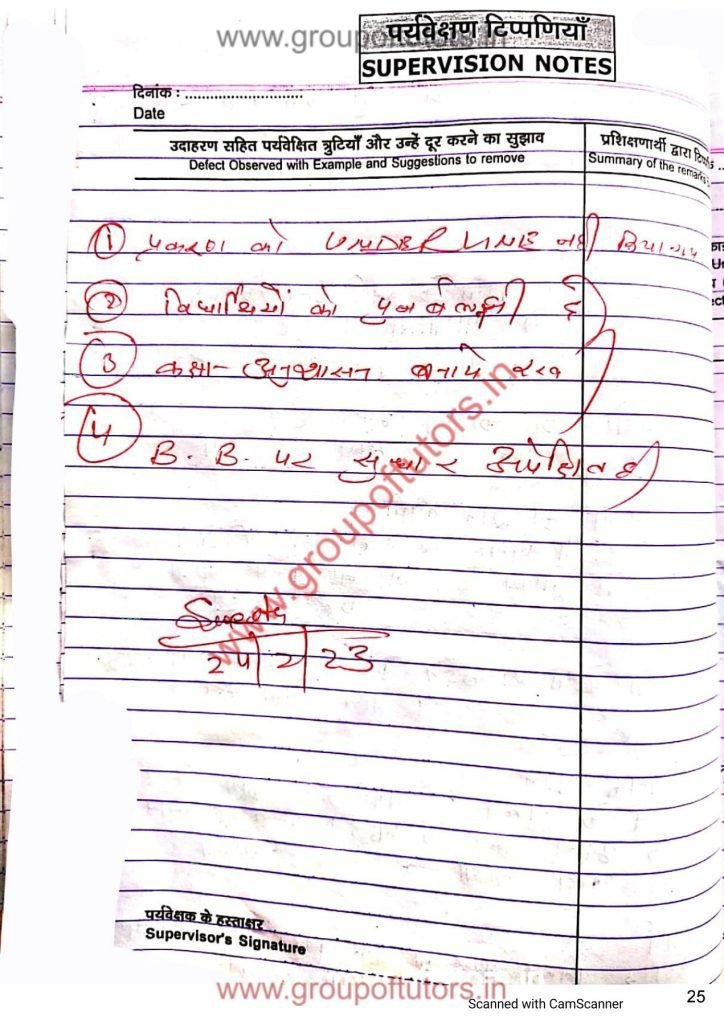 www.groupoftutors.in
पर्यवेक्षण टिप्पणियाँ
SUPERVISION NOTES
दिनांक : ............................
Date
उदाहरण सहित पर्यवेक्षित त्रुटियाँ और उन्हें दूर करने का सुझाव
Defect Observed with Example and Suggestions to remove
प्रशिक्षणार्थी द्वारा
Summary of the remarks
① प्रकरण को UNDERLINE नहीं किया गया
② विद्यार्थियों को दें
③ कक्षा-अनुशासन बनाये रखें
④
B.B. पर सुधार अपेक्षित है
www.groupoftutors.in
24/2/23
पर्यवेक्षक के हस्ताक्षर
Supervisor's Signature
www.groupoftutors.in
Scanned with CamScanner
25